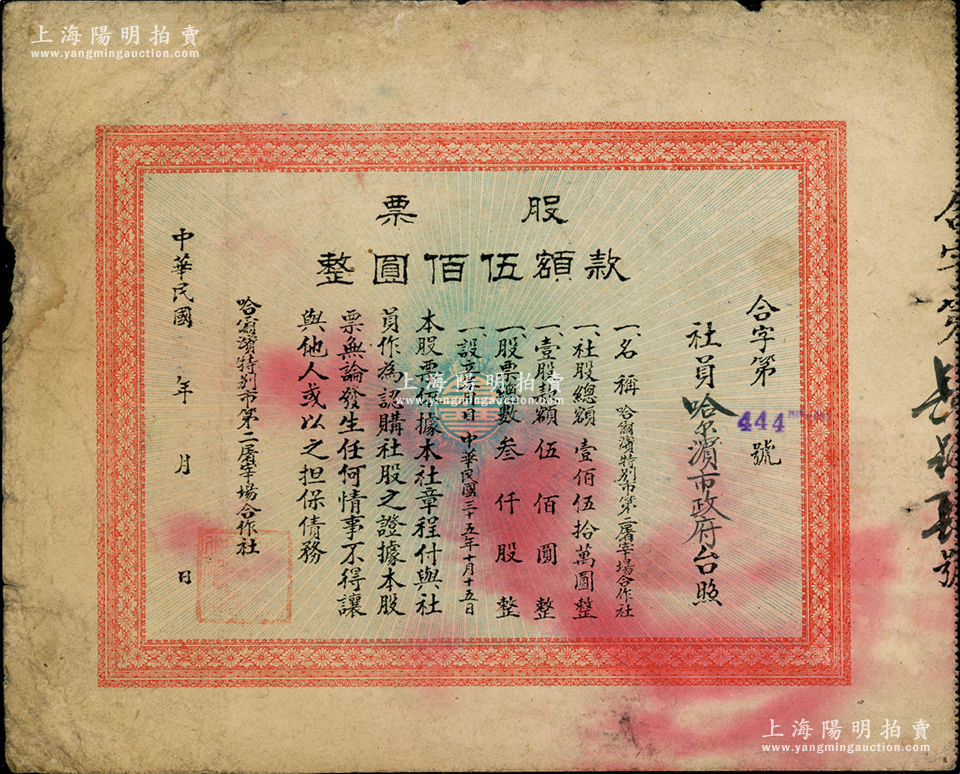 上海陽明拍賣
www.yangmingauction.com
股票
款額伍佰圓整
合字第
444
號
社員哈尔濱市政府台照
一、名稱 哈爾濱特別市第二屠宰場合作社
一、社股總額 壹佰伍拾萬圓整
一、壹股款額 伍佰圓整
一、股票總數 叁仟股整
一、設立年月日 中華民國三十五年十月十五日
本股票係據本社章程付與社
員作為認購社股之證據本股
票無論發生任何情事不得讓
與他人或以之担保債務
哈爾濱特別市第二屠宰場合作社
中華民國 年 月 日
上海陽明拍賣
www.yangmingauction.com
合字第
號
上海陽明拍賣
www.yangmingauction.com